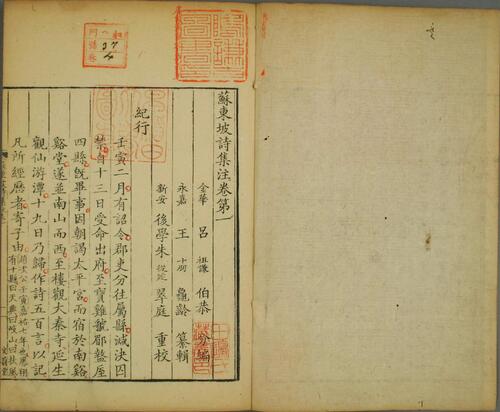 蘇東坡詩集注卷第一
金華 呂 祖謙 伯恭 分編
永嘉 王 十朋 龜齡 纂輯
新安 後學朱 從延 翠庭 重校
紀行
壬寅二月有詔令郡吏分往屬縣減決囚
禁自十三日受命出府至寶雞虢郿盩厔
四縣旣畢事因朝謁太平宮而宿於南谿
谿堂遂並南山而西至樓觀大秦寺延生
觀仙游潭十九日乃歸作詩五百言以記
凡所經歷者寄子由
有十縣曰天興曰岐山曰扶風
文蔚堂